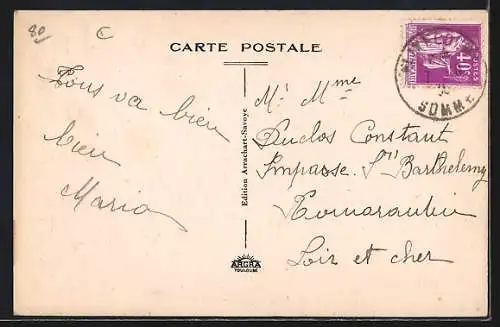 80
C
CARTE POSTALE
Tous va bien
bien
Maria
Mr Mme
Duclos Constant
Impasse St Barthelemy
Romarantin
Loir et cher
Edition Arrachart-Savoye
ARGRA
TOULOUSE
40c
POSTES
SOMME